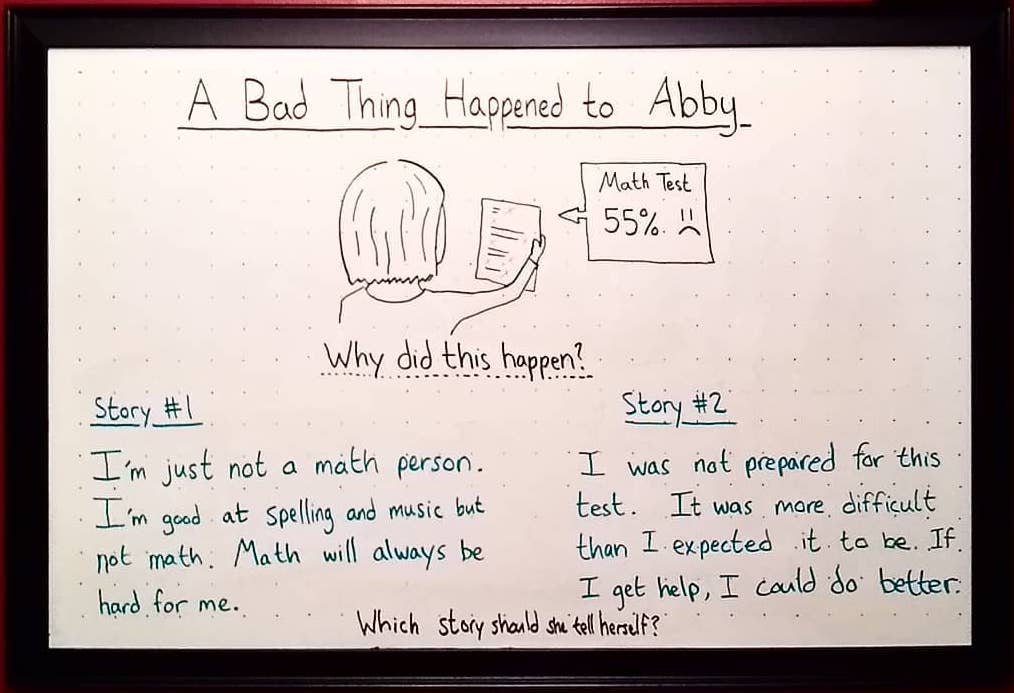 A Bad Thing Happened to Abby
Math Test
55%
Why did this happen?
Story #1
I'm just not a math person.
I'm good at spelling and music but
not math. Math will always be
hard for me.
Story #2
I was not prepared for this
test. It was more difficult
than I expected it to be. If
I get help, I could do better.
Which story should she tell herself?